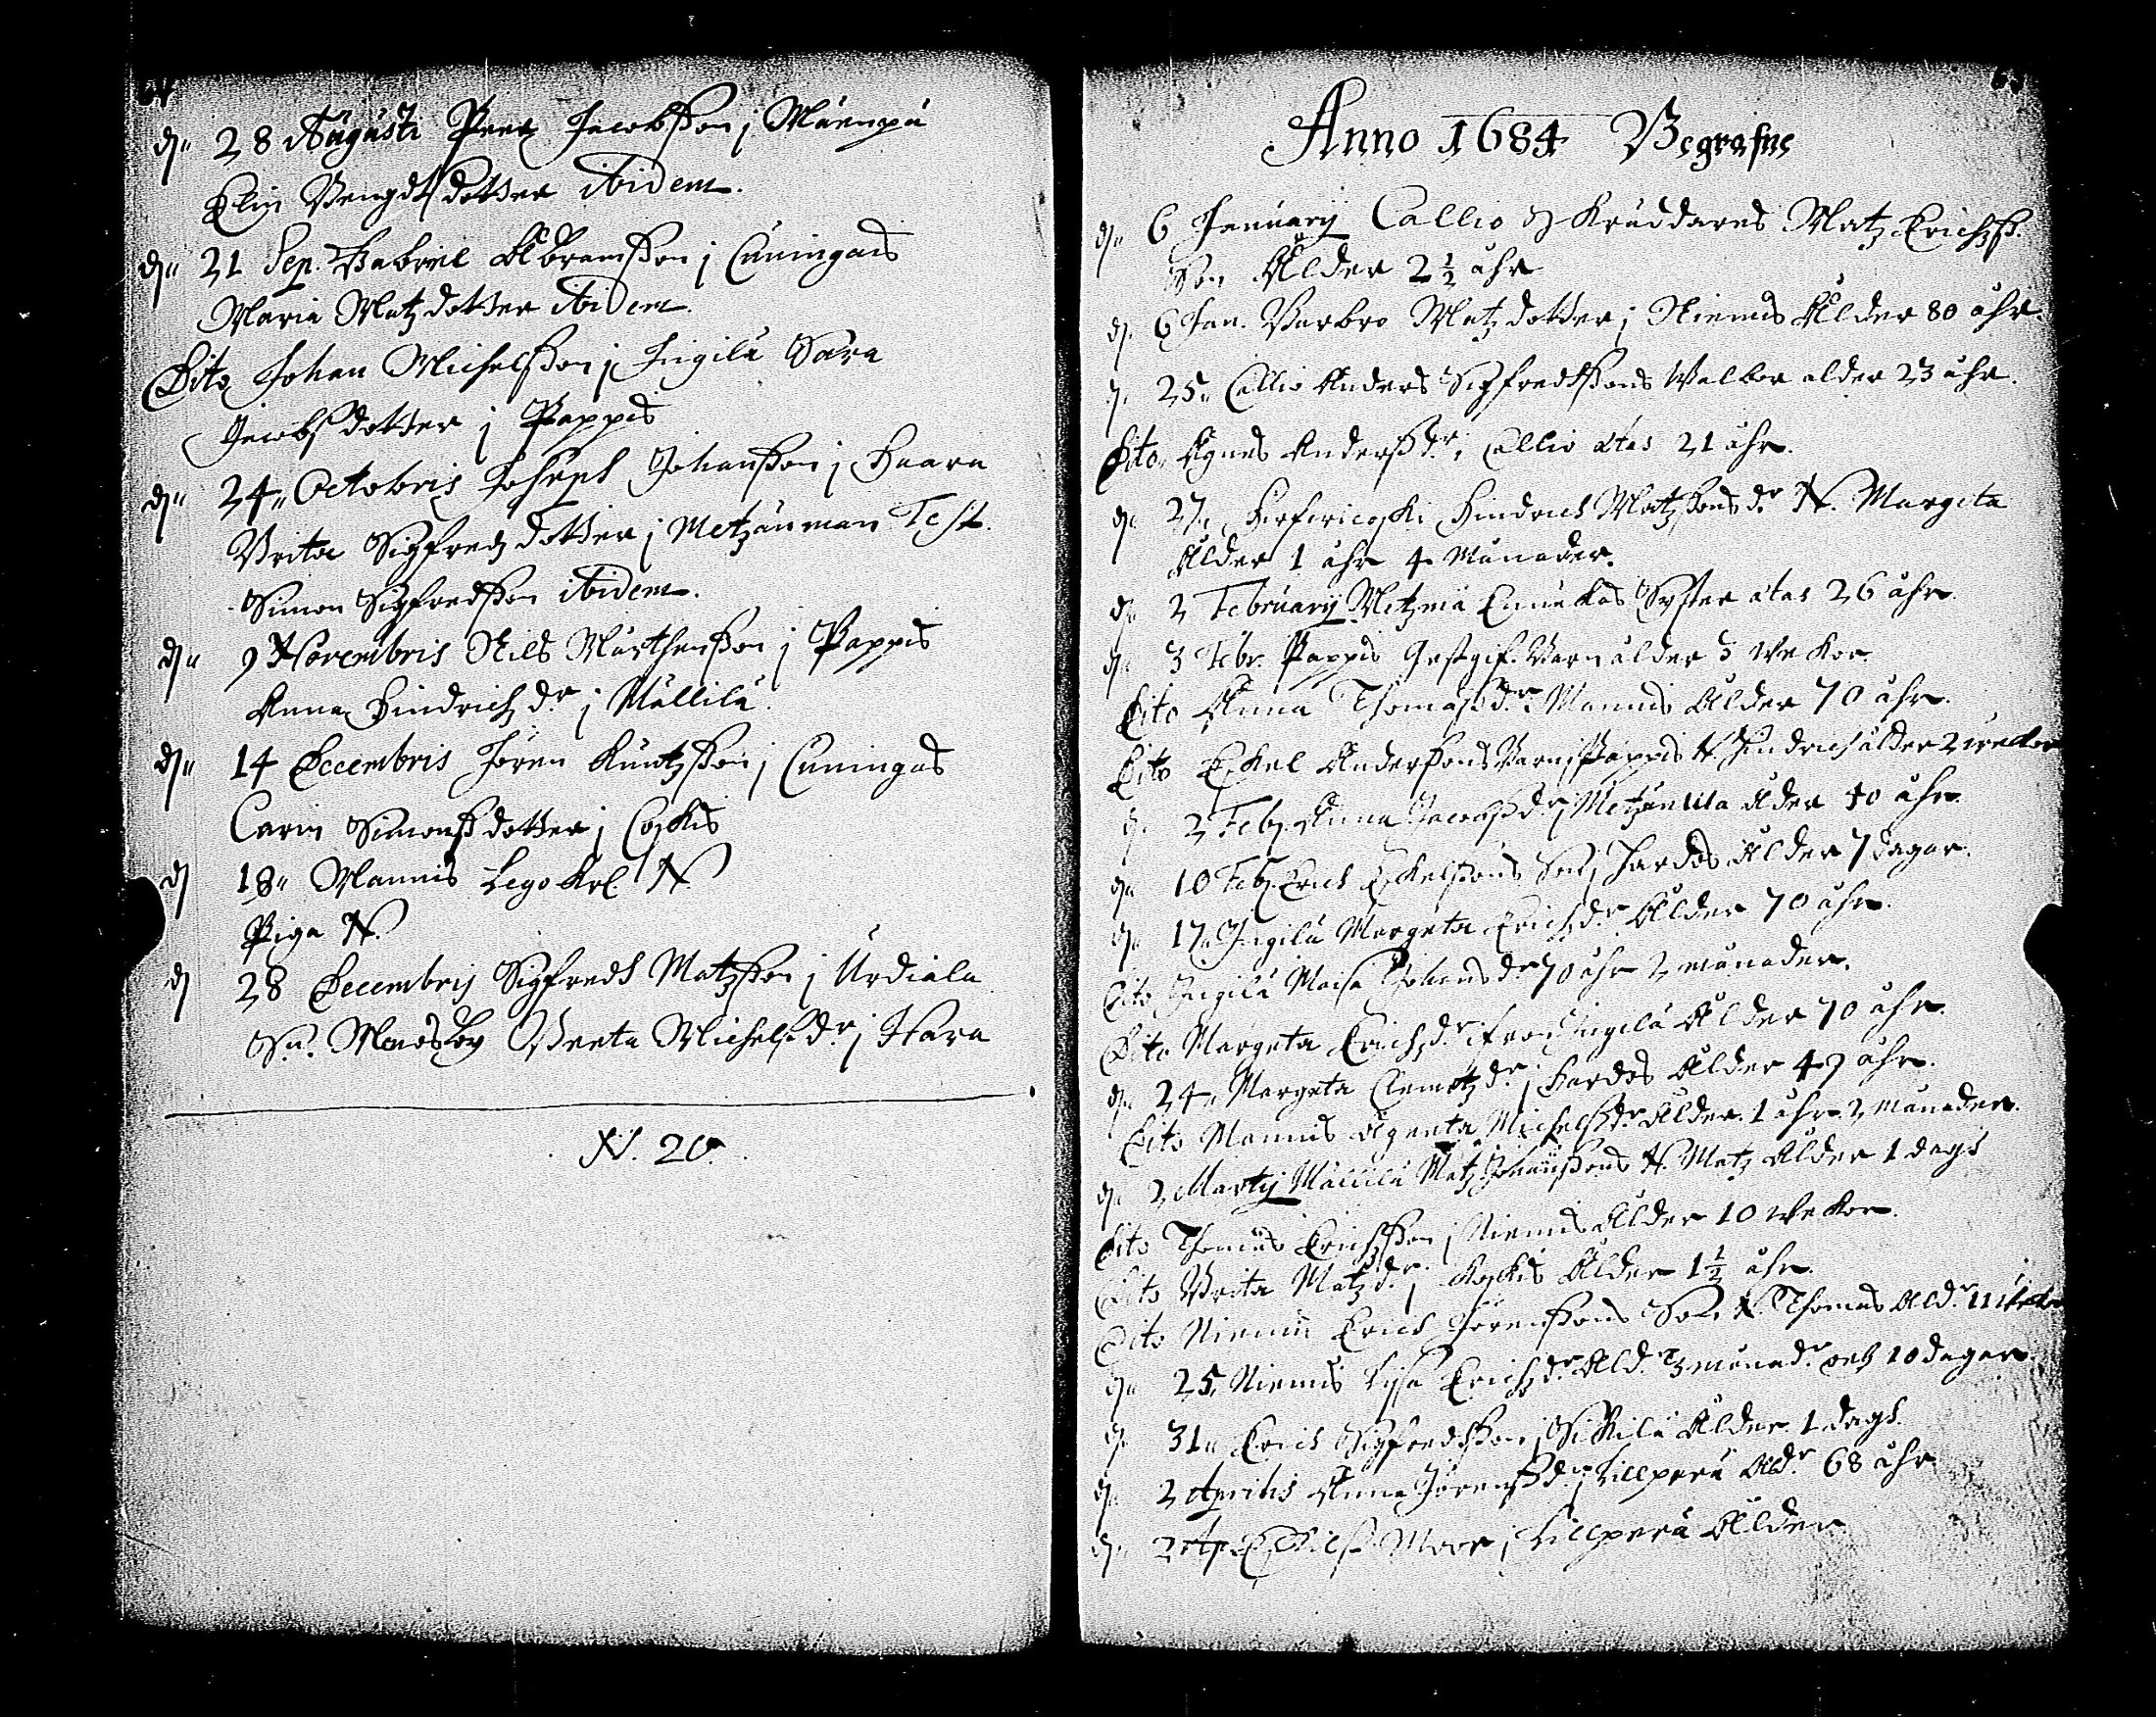 64
dn 28 Augusti Peer Jacobsson i Måenpä
Elin Bengdtsdotter ibidem.
dn 21 Sep. Gabriel Abramsson i Cuningas
Maria Matzdotter ibidem.
Dito Johan Michelsson i Ingilä Sara
Jacobsdotter i Pappis
dn 24 Octobris Joseph Johansson i Haara
Brita Sigfredzdotter i Metzänman Test.
Simon Sigfredsson ibidem.
dn 9 Novembris Nils Mårthensson i Pappis
Anna Hindrichzdr i Mällilä
dn 14 Decembris Jören Knutzson i Cuningas
Carin Simonsdotter i Coskis
d 18 Mannis Lego Krl. N.
Piga N.
d 28 Decembris Sigfredh Matzson i Urdiala
Beeta Michelsdr i Hara
N. 20.
Anno 1684 Begrafne
dn 6 January Callio Kräddares Matz Erichs.
Son Ålder 2½ åhr
d. 6 Jan. Barbro Matzdotter i Niemis Ålder 80 åhr.
d. 25 Callio Anders Sigfredssons Walbor alder 23 åhr.
Dito Agnes Andersdr i Callio ætas 21 åhr.
dn 27 Hindrich Matzsons dr N. Margeta
Ålder 1 åhr 4 Månader.
dn 2 February Metzmä Syster ætas 26 åhr.
dn 3 Febr. Pappis Gestgif. Barn ålder 3 Wekor.
Dito Anna Thomasdr Mannis Ålder 70 åhr.
Dito Eskel Anderssons Barn i Pappis N. Hindrich ålder 2 wekor
d. 2 Feb. Anna Jacobsdr i Metzäntila Ålder 40 åhr.
dn 10 Feb. Erich Eskelssons Son i Hardos Ålder 7 dagar.
dn 17 Ingilä Margeta Erichzdr Ålder 70 åhr.
Dito Ingilä Maisa Johansdr 70 åhr 2 månader.
Dito Margeta Erichzdr ifron Ingilä Ålder 70 åhr.
dn 24 Margeta Clemetzdr i Hardos Ålder 49 åhr.
Dito Mannis Agneta Michelsdr Ålder 1 åhr 2 månader.
dn 2 Martij Mällilä Matz Johanssons N. Matz Ålder 1 dags
Dito Thomas Erichsson i Niemis Ålder 10 Wekor.
Dito Brita Matzdr i Koskis Ålder 1½ åhr.
Dito Niemin Erich Jörenssons Son N. Thomas Åldr 11 Wekor
dn 25 Niemis Lisa Erichzdr Åld. 3 månadr och 10 dagar.
d. 31 Erich Sigfredsson i Sikilä Ålder 1 dags.
dn 2 Aprilis Anna Jörensdr i Lillperä Åldr 68 åhr
d. 2 Ap. Eskils Moor i Lillperä Ålder